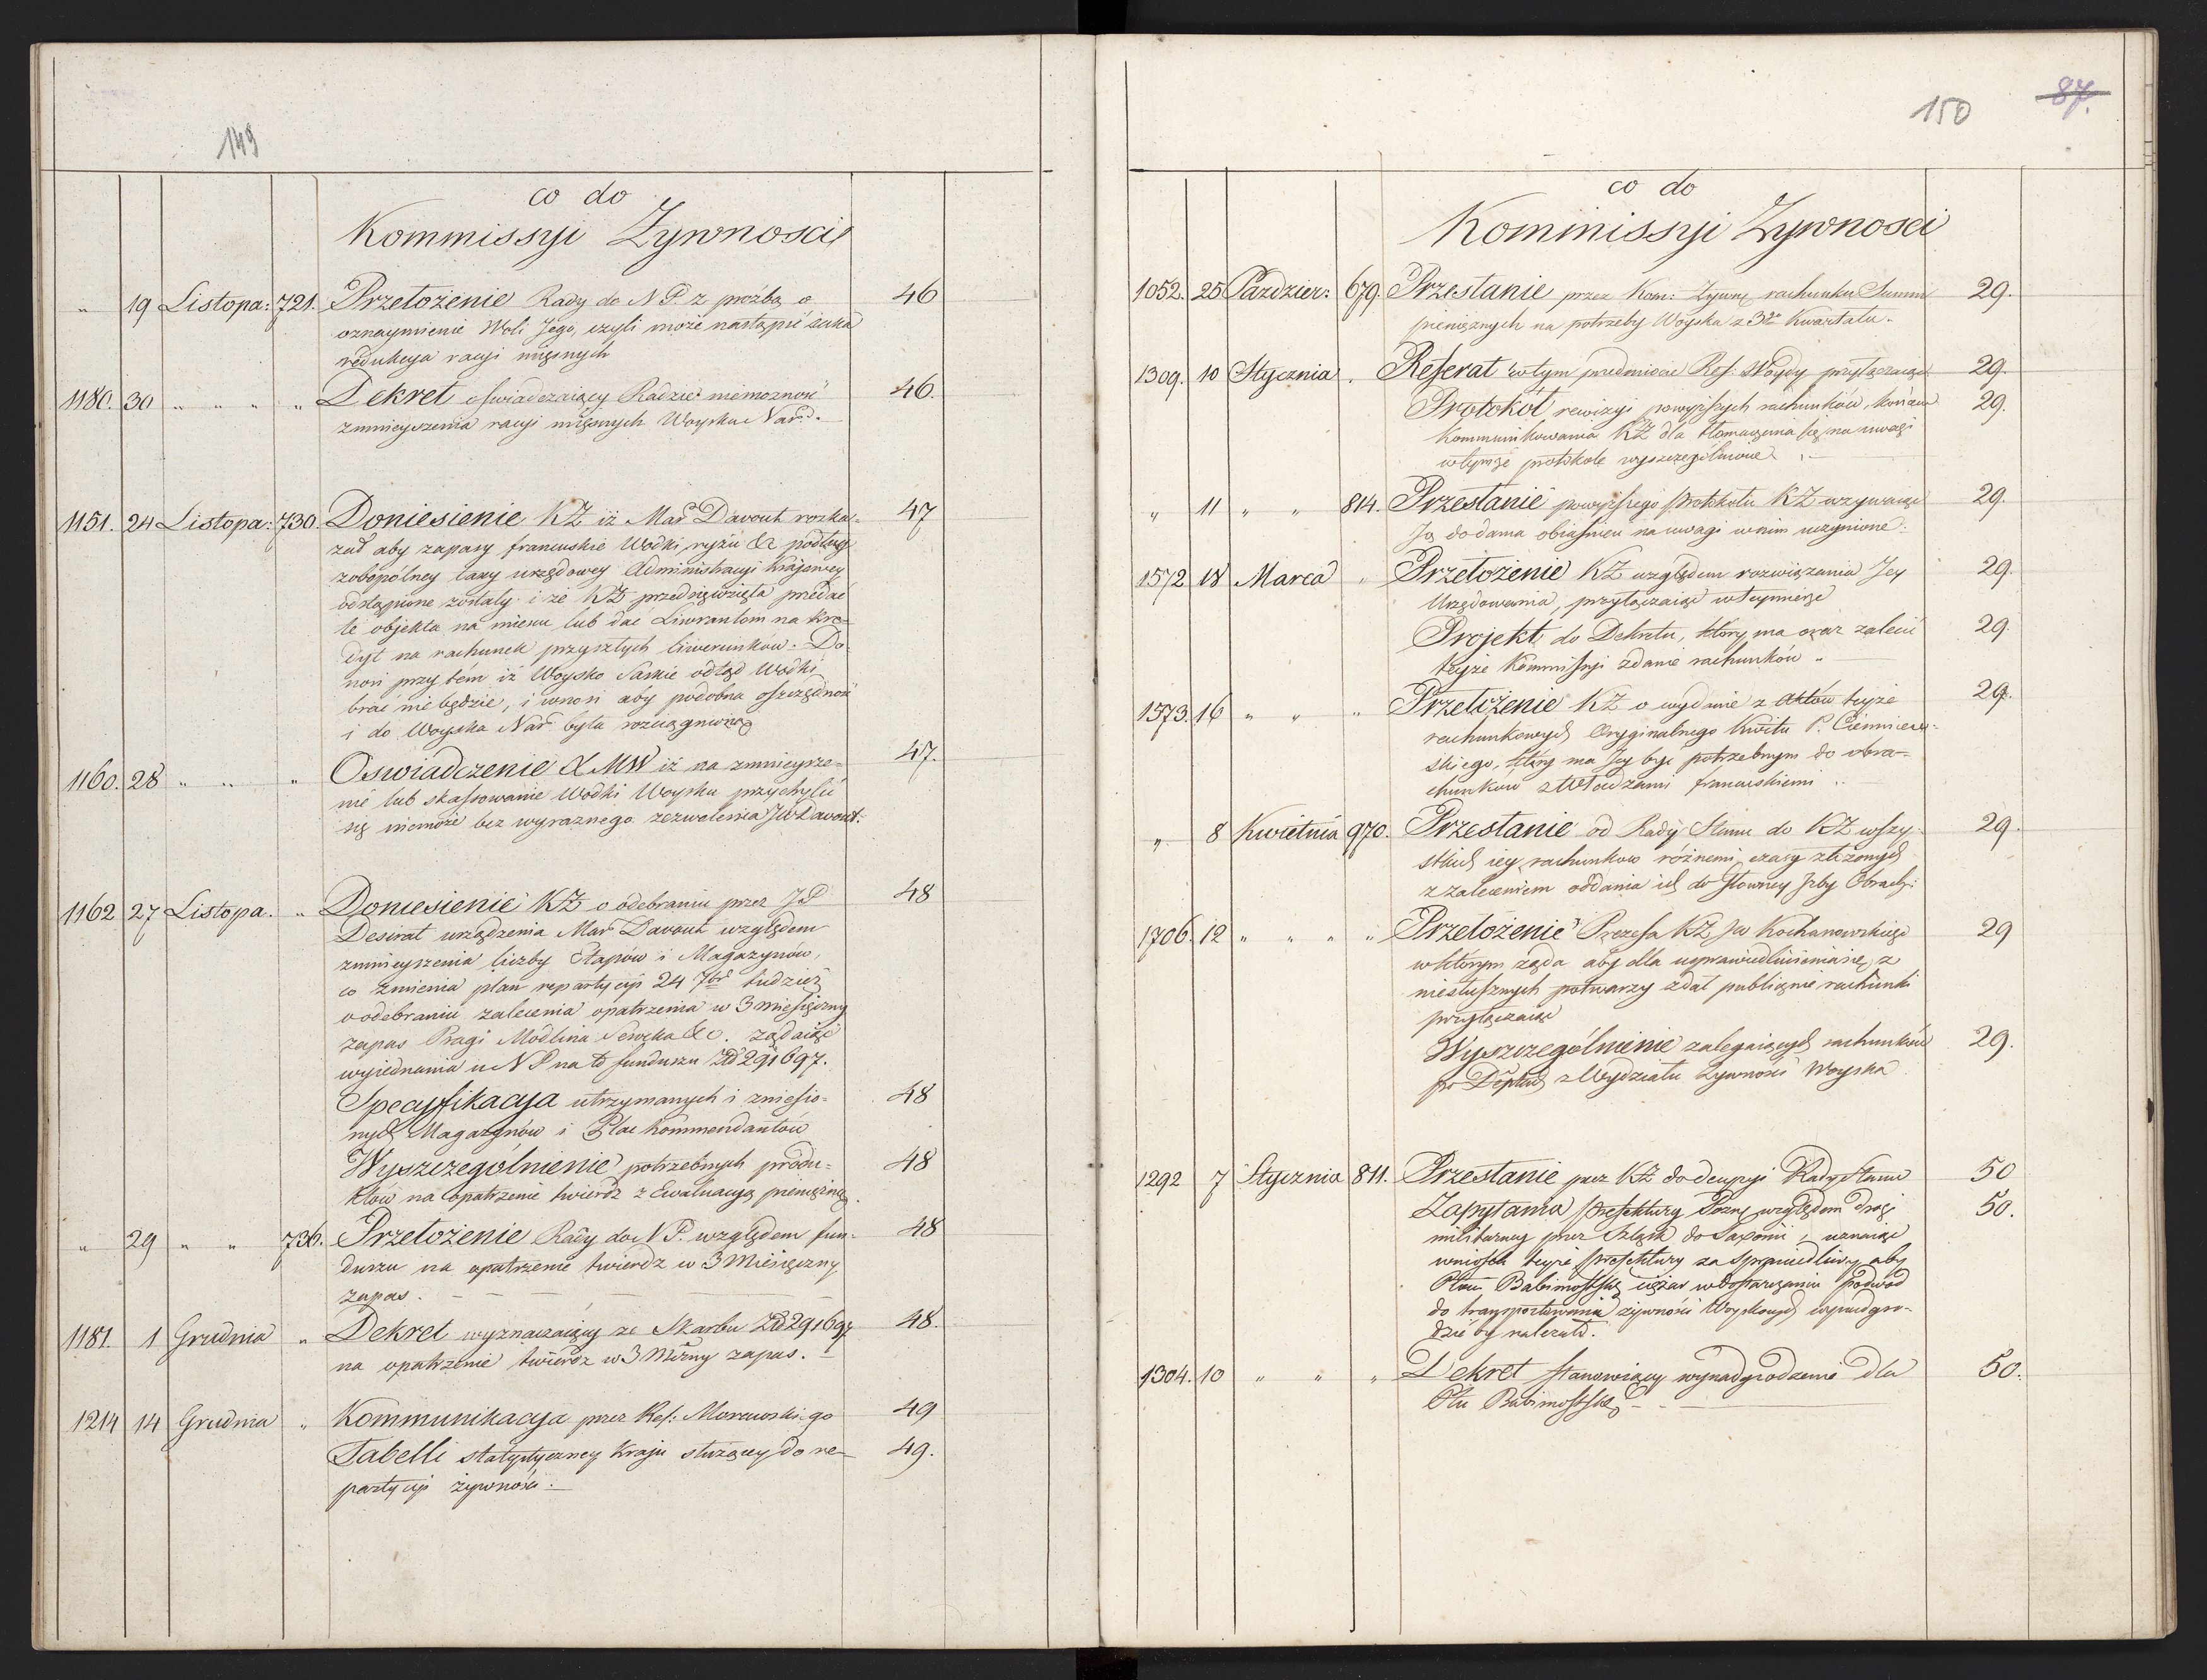 149
co do
Kommissyi Zywnosci
„ 19 Listopa: 721. Przełożenie Rady do N P. z proźbą o 46
oznaymienie Woli Jego, czyli może nastąpić
redukcya racyi mięsnych
1180. 30 „ „ „ „ Dekret oswiadczaiący Radzie niemożność 46.
zmnieyszenia racyi mięsnych Woyska Nard.
1151. 24 Listopa: 730. Doniesienie KZ iż Mar Davout rozka= 47
zał aby zapasy francuskie Wodki, ryżu &c podług
zobopólney taxy urzędowey Administracyi Krajowey
odstąpione zostały i że KZ przedsięwzięła przedać
te objekta na mieyscu lub dać Liwrantom na kre=
dyt na rachunek przyszłych liwerunków. Do
nosi przytém iż Woysko Saskie odtąd Wodki
brać nie będzie, i wnosi aby podobna oszczędność
i do Woyska Nar była rozciągniona
1160. 28 „ „ „ Oswiadczenie MW iż na zmnieysze= 47.
nié lub skassowanie Wodki Woysku przychylić
się niemoże bez wyraznego zezwolenia JW Davout.
1162 27 Listopa. „ Doniesienie KZ o odebraniu przez J P 48
Desirat urządzenia Mar Davout względem
zmnieyszenia liczby Etapów i Magazynów,
co zmienia plan repartycyi 24 7br tudzież
o odebraniu zalecenia opatrzenia w 3 miesięczny
zapas Pragi Modlina Serocka &c. żądaiąc
wyiednania u N P na to funduszu Zł 291697.
Specyfikacya utrzymanych i zniesio= 48
nych Magazynów i Plac Kommendantów
Wyszczególnienie potrzebnych produ= 48
któw na opatrzenie twierdz z Ewaluacyą pieniężną.
„ 29 „ „ 736. Przełożenie Rady do N P. względem fun= 48
duszu na opatrzenie twierdz w 3 Miesięczny
zapas.
1181. 1 Grudnia „ Dekret wyznaczaiący ze Skarbu Zł 291697 48.
na opatrzenie twierdz w 3 Mczny zapas.
1214 14 Grudnia „ Kommunikacya przez Ref: Morawskiego 49
Tabelli statystyczney Kraju służącey do re= 49.
partycyi żywności.
150 87.
co do
Kommissyi Zywnosci
1052. 25 Pazdzier: 679. Przesłanie przez Kom: Zywn rachunku Summ 29.
pieniężnych na potrzeby Woyska z 3go Kwartału.
1309. 10 Stycznia . Referat w tym przedmiocie Ref: Woydy przyłączaiący 29.
Protokół rewizyi powyższych rachunków, 29.
Kommunikowania KZ dla tłomaczenia się na uwagi
w tymże protokole wyszczególnione
„ 11 „ „ 814. Przesłanié powyższego Protokułu KZ wzywaiąc 29.
Ją do dania obiaśnień na uwagi w nim uczynione.
1572 18 Marca „ Przełożenie KZ względem rozwiązania Jey 29.
Urzędowania, przyłączaiąc w teymierze
Projekt do Dekretu, który ma oraz zalecić 29.
teyże Kommissyi zdanie rachunków „
1573. 16 „ „ „ Przełożenie KZ o wydanie z Aktów teyże 29.
rachunkowych Oryginalnego Kwitu P. Ciemniew=
skiego, który ma Jey być potrzebnym do obra=
chunków z Władzami francuskiemi
„ 8 Kwietnia 970. Przesłanie od Rady Stanu do KZ wszy= 29.
stkich iey rachunków różnemi czasy złożonych
z zaleceniem oddania ich do Głowney Izby Obrach:
1706. 12 „ „ „ „ Przełożenie Prezesa KZ JW Kochanowskiego 29
w którym żąda aby dla usprawiedliwienia się z
niesłusznych potwarzy zdał publicznie rachunki
przyłączaiąc
Wyszczególnienie zalegaiących rachunków 29.
po Dеptach z Wydziału Żywności Woyska
1292 7 Stycznia 811. Przesłanie przez KZ do decyzyi Rady Stanu 50
Zapytania Prefektury Pozn względem drogi 50.
militarney przez Szląsk do Saxonii, uznaiąc
wniosek teyże Prefektury za sprawiedliwy aby
Ptowi Babimostskiemu ciężar w dostarczaniu podwod
do transportowania żywności Woyskowych wynadgro=
dzić by należało.
1304. 10 „ „ „ Dekret stanowiący wynadgrodzenié dla 50.
Ptu Babimostskiego